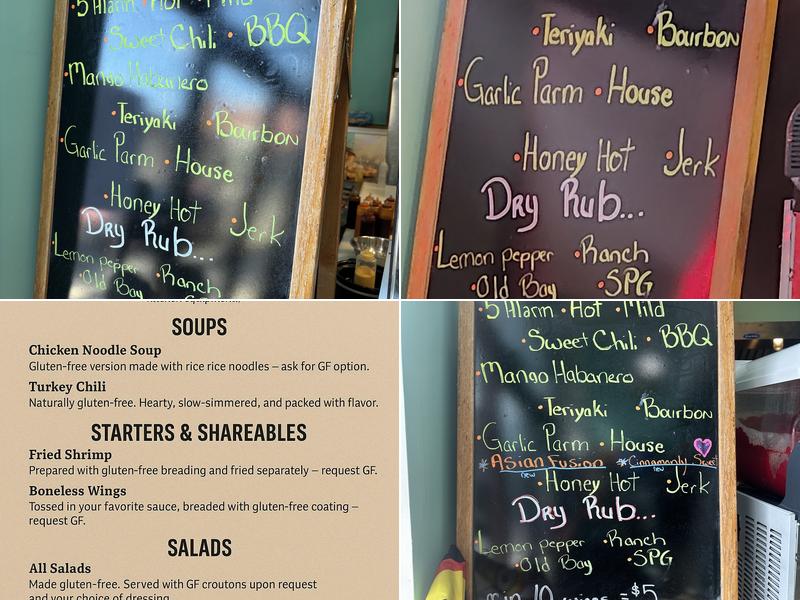 5 Alarm • Hot • Mild
• Sweet Chili • BBQ
• Mango Habanero
• Teriyaki • Bourbon
• Garlic Parm • House
• Honey Hot • Jerk
Dry Rub...
• Lemon pepper • Ranch
• Old Bay • SPG
• Teriyaki • Bourbon
• Garlic Parm • House
• Honey Hot • Jerk
Dry Rub...
• Lemon pepper • Ranch
• Old Bay • SPG
SOUPS
Chicken Noodle Soup
Gluten-free version made with rice rice noodles – ask for GF option.
Turkey Chili
Naturally gluten-free. Hearty, slow-simmered, and packed with flavor.
STARTERS & SHAREABLES
Fried Shrimp
Prepared with gluten-free breading and fried separately – request GF.
Boneless Wings
Tossed in your favorite sauce, breaded with gluten-free coating –
request GF.
SALADS
All Salads
Made gluten-free. Served with GF croutons upon request
and your choice of dressing.
5 Alarm • Hot • Mild
• Sweet Chili • BBQ
• Mango Habanero
• Teriyaki • Bourbon
• Garlic Parm • House
* Asian Fusion * Cinnamonly Sweet
new new
• Honey Hot • Jerk
Dry Rub...
• Lemon pepper • Ranch
• Old Bay • SPG
min 10 wings = $5